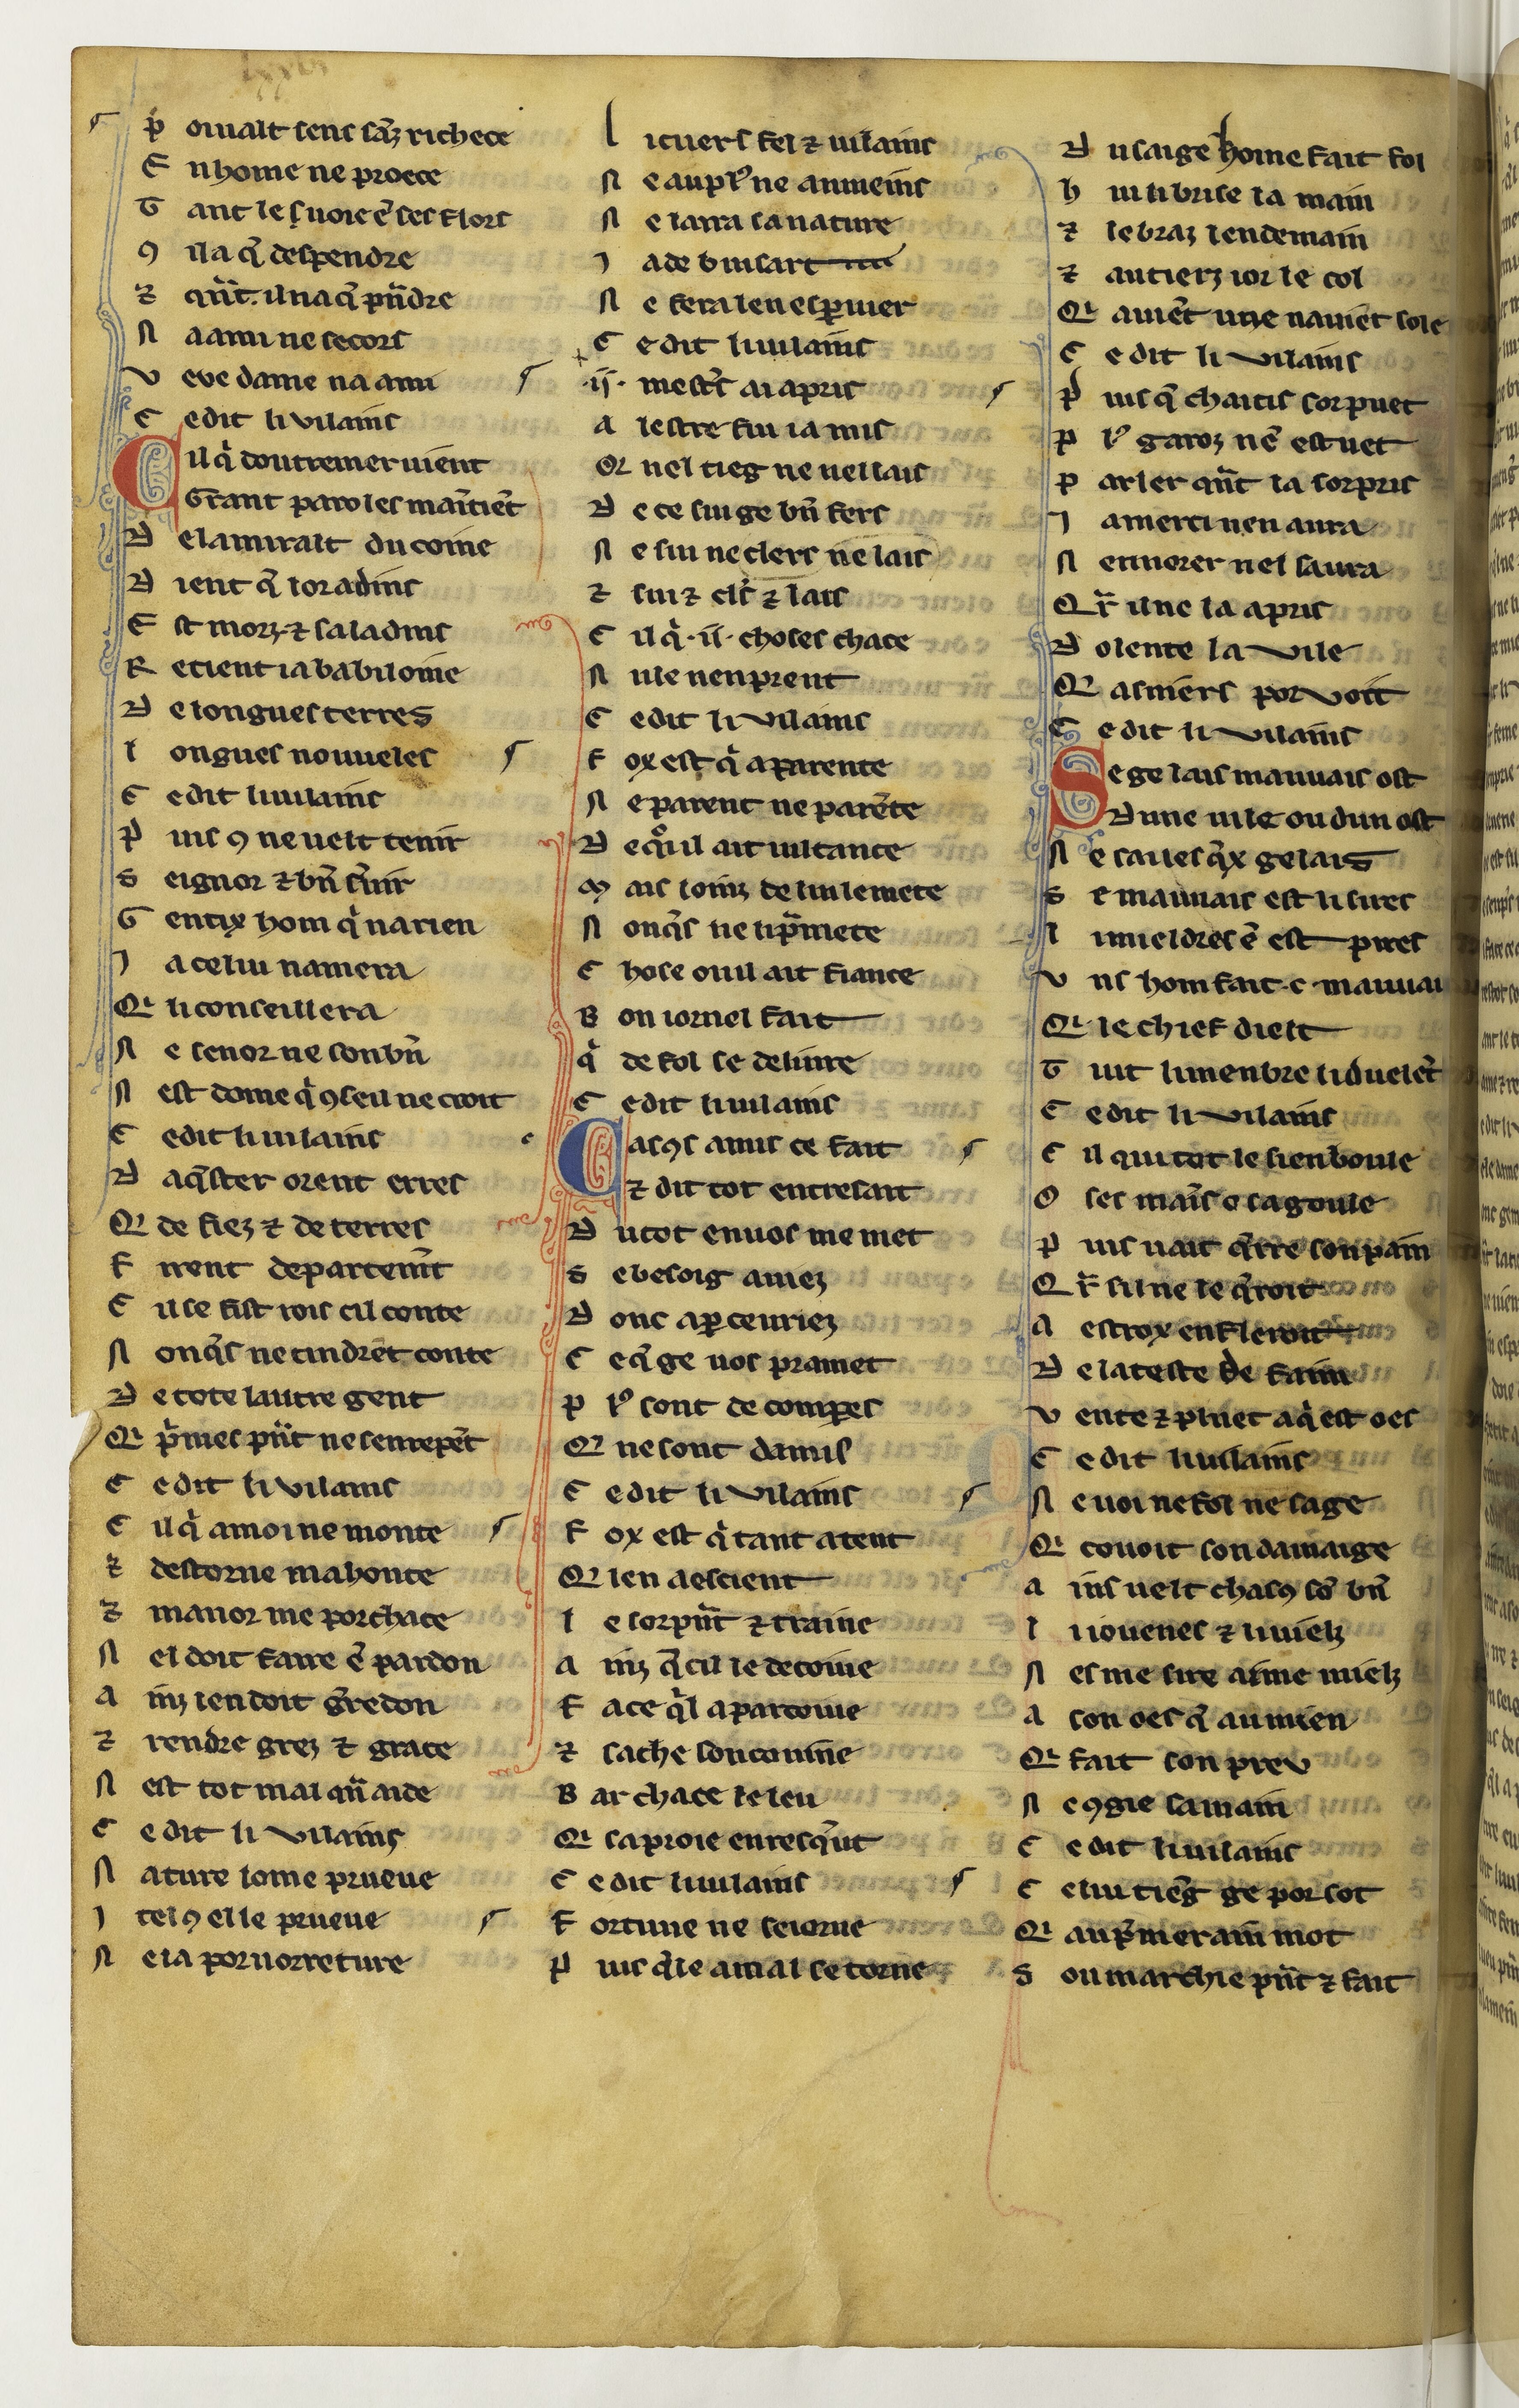 P ouualt sens sanz richece
E nhome ne proece
T ant le suoie ē ses flors
ꝯ il a q̄ despendre
⁊ qn̄t il na q̄ pn̄dre
N a ami ne secors
V eve dame na ami
C e dit li vilains
C il q̇ doutremer uient
G rant paroles maītiēt
D el amiralt du coine
D ient q̄ loradins
E st morz ⁊ saladins
R etient ia babiloine
D e longues terres
L ongues nouueles
C e dit li uilains
P uis ꝯ ne uelt tenir
S eignor ⁊ bn̄ s̄uir
G entix hom q̇ na rien
J a celui namera
Q i li conseillera
N e senor ne son bn̄
N est dome q̇ ꝯseil ne croit
C e dit li uilains
D aq̄ster orent erres
Q i de fiez ⁊ de terres
F irent departemt̄
C il se fist rois cil conte
N onq̄s ne tindrēt conte
D e tote lautre gent
Q i ṗmes pn̄t ne senrepēt
C e dit li vilains
C il q̇ a moi ne monte
⁊ destorne ma honte
⁊ manor me porchace
N el doit faire ē pardon
A inz len doit ḡredon
⁊ rendre grez ⁊ grace
N est tot mal qn̄ aide
C e dit li vilains
N ature lome prueue
J tel ꝯ elle prueue
N e ia por norreture
L icuers fel ⁊ uilains
N e au pl᷒ ne au meins
N e laira sa nature
J a de buisart
N e fera len esꝑuier
C e dit li uilains
.ii. mest̄s ai apris
A lestre sui ia mis
Q nel tieg ne nel lais
D e ce sui ge bn̄ fers
N e sui ne clers ne lais
⁊ sui ⁊ cl̄s ⁊ lais
C il q̇ .ii. choses chace
N ule nen prent
C e dit li vilains
F ox est q̇ aparente
N e parent ne parēte
D e qͦ il ait uiltance
M ais loinz de lui le mete
N onq̄s ne li p̄mete
C hose ou il ait fiance
B on iornel fait
Q̇ de fol se deliure
C e dit li uilains
C asꝯs amis ce fait
⁊ dit tot entresait
D u tot en uos me met
S e besoig auiez
D onc aꝑceuriez
C e q̄ ge uos pramet
P l᷒ sont de comperes
Q ne sont damis
C e dit li vilains
F ox est q̇ tant atent
Q i len a escient
L e sorpn̄t ⁊ traine
A inz q̄ cil le decoiue
F ace q̇l aparcoiue
⁊ sache son couine
B ar chace le leu
Q i sa proie en resq̄ut
C e dit li uilains
F ortune ne seiorne
P uis q̄le a mal se torne
D u saige home fait fol
H ui li brise la main
⁊ le braz lendemain
⁊ au tierz ior le col
Q i auiēt une nauiēt sole
C e dit li vilains
P uis q̄ chaitis sorpuet
P l᷒ garoz nē estuet
P arler qn̄t la sorpris
J a merci nen aura
N en norer nel saura
Q r̄ il ne la apris
D olente la vile
Q asniers por voit
C e dit li vilains
S e ge lais mauuais ost
D une uile ou dun ost
N e saues q̄x ge lais
S e mauuais est li sires
L i mieldres ē est pires
V ns hom fait .c. mauuai
Q i le chief dielt
T uit li menbre li duelēt
C e dit li vilains
C il qui tot le sien boule
O ses maīs o sa goule
P uis uait q̄rre son pain
Q r̄ sil ne le q̄roit
A estrox enfleroit
D e la teste de faim
V ente ⁊ pluet a q̇ est oes
C e dit li uilains
N e uoi ne fol ne sage
Q i couoit son damaige
A ins uelt chasꝯ so bn̄
L i iouenes ⁊ li uielz
N es me sire aime mielz
A son oes q̄ au mien
Q i fait son preu
N e ꝯgie sa main
C e dit li uilains
C elui tiēg ge por sot
Q i au p̄merain mot
S ou marchie pn̄t ⁊ fait